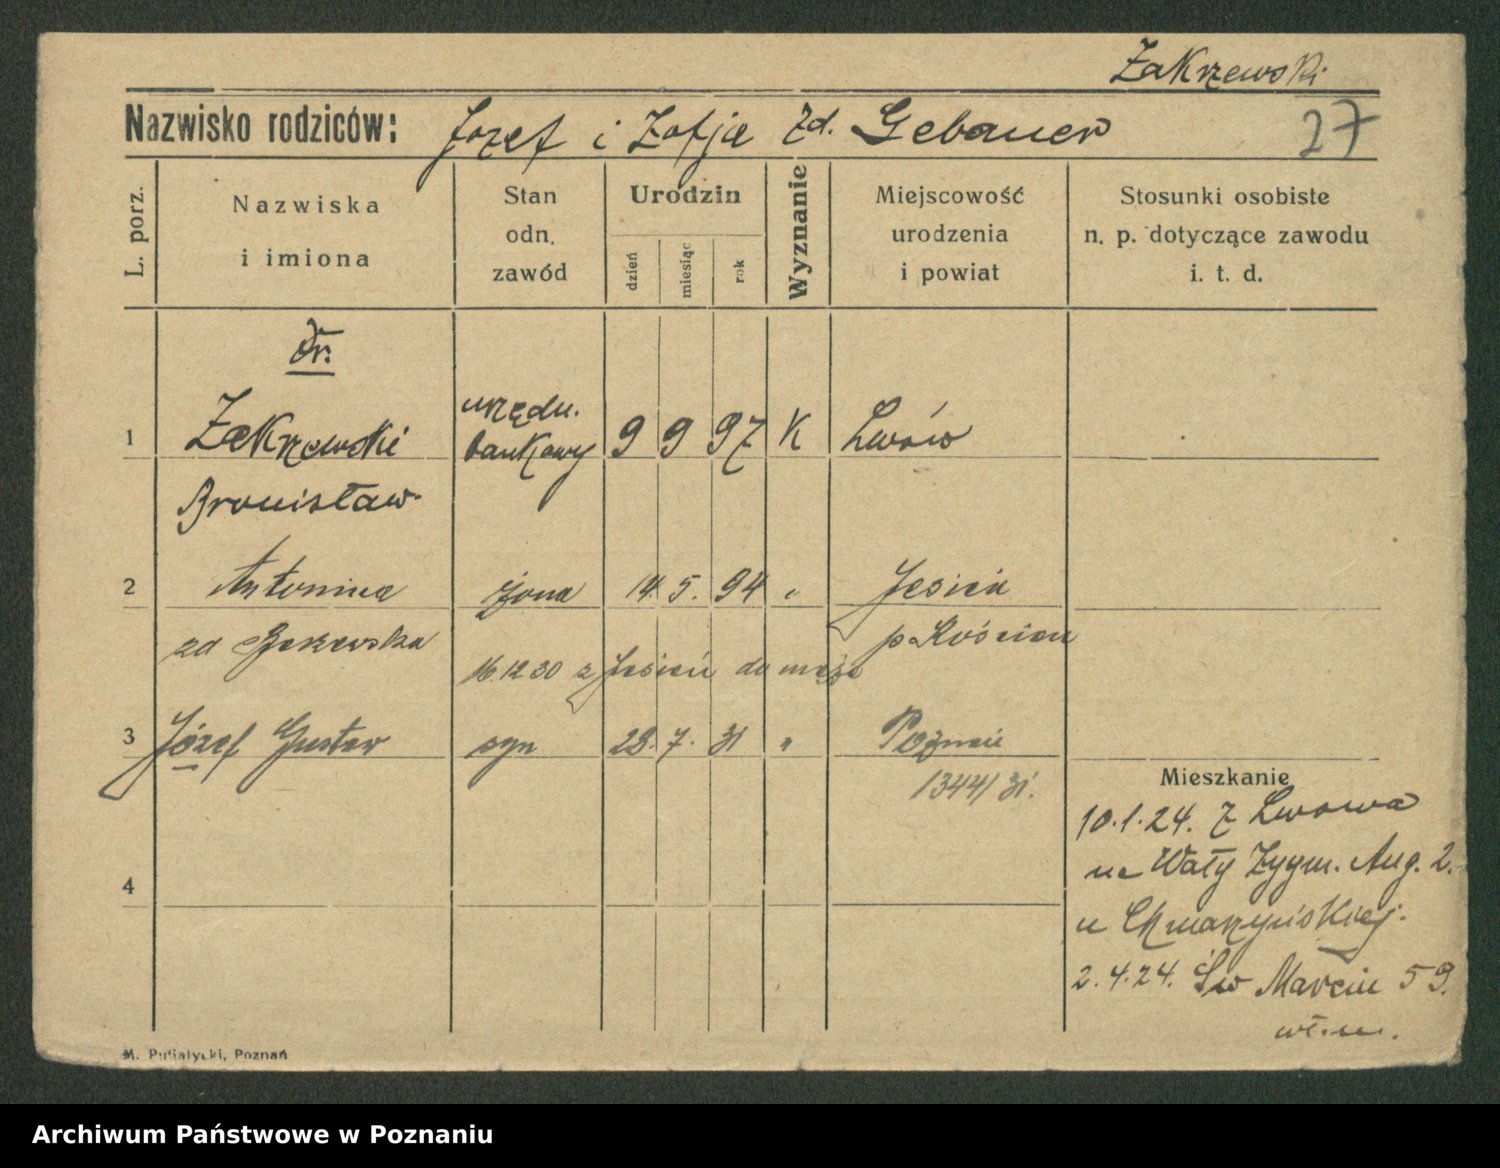 Zakrzewski
Nazwisko rodziców: Józef i Zofja zd. Gebauer
27
L. porz.
Nazwiska
i imiona
Stan
odn.
zawód
Urodzin
dzień
miesiąc
rok
Wyznanie
Miejscowość
urodzenia
i powiat
Stosunki osobiste
n. p. dotyczące zawodu
i. t. d.
dr.
1 Zakrzewski urzędn. bankowy 9 9 97 K Lwów
Bronisław
2 Antonina żona 14. 5. 94 " Jesień
zd p Kościan
16.12 30 z Jesień do męża
3 Józef Gustaw syn 28. 7. 31 " Poznań
1344/31.
Mieszkanie
10.1.24. z Lwowa
na Wały Zygm. Aug. 2.
u Chmarzyńskiej.
2.4.24. Św Marcin 59.
wł. m.
4
M. Putiatycki, Poznań
Archiwum Państwowe w Poznaniu